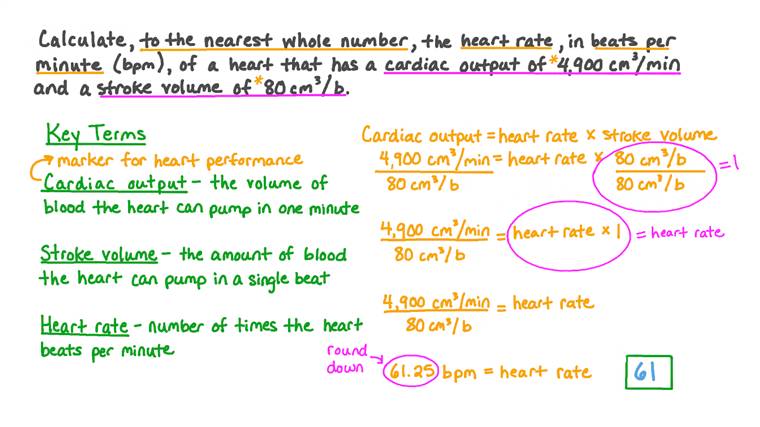 Calculate, to the nearest whole number, the heart rate, in beats per
minute (bpm), of a heart that has a cardiac output of *4,900 cm³/min
and a stroke volume of *80 cm³/b.
Key Terms
marker for heart performance
Cardiac output – the volume of
blood the heart can pump in one minute
Stroke volume – the amount of blood
the heart can pump in a single beat
Heart rate – number of times the heart
beats per minute
Cardiac output = heart rate × stroke volume
4,900 cm³/min = heart rate × 80 cm³/b = 1
80 cm³/b 80 cm³/b
4,900 cm³/min = heart rate × 1 = heart rate
80 cm³/b
4,900 cm³/min = heart rate
80 cm³/b
round
down
61.25 bpm = heart rate
61